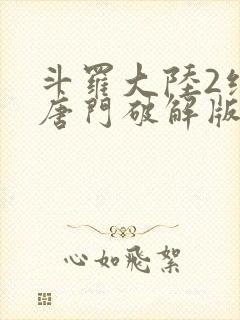 斗羅大陸2絕
唐門破解版
心如飛絮